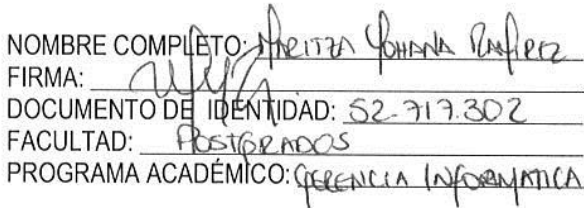 NOMBRE COMPLETO: MARITZA YOHANA RAMIREZ
FIRMA:
DOCUMENTO DE IDENTIDAD: 52.717.302
FACULTAD: POSTGRADOS
PROGRAMA ACADÉMICO: GERENCIA INFORMATICA